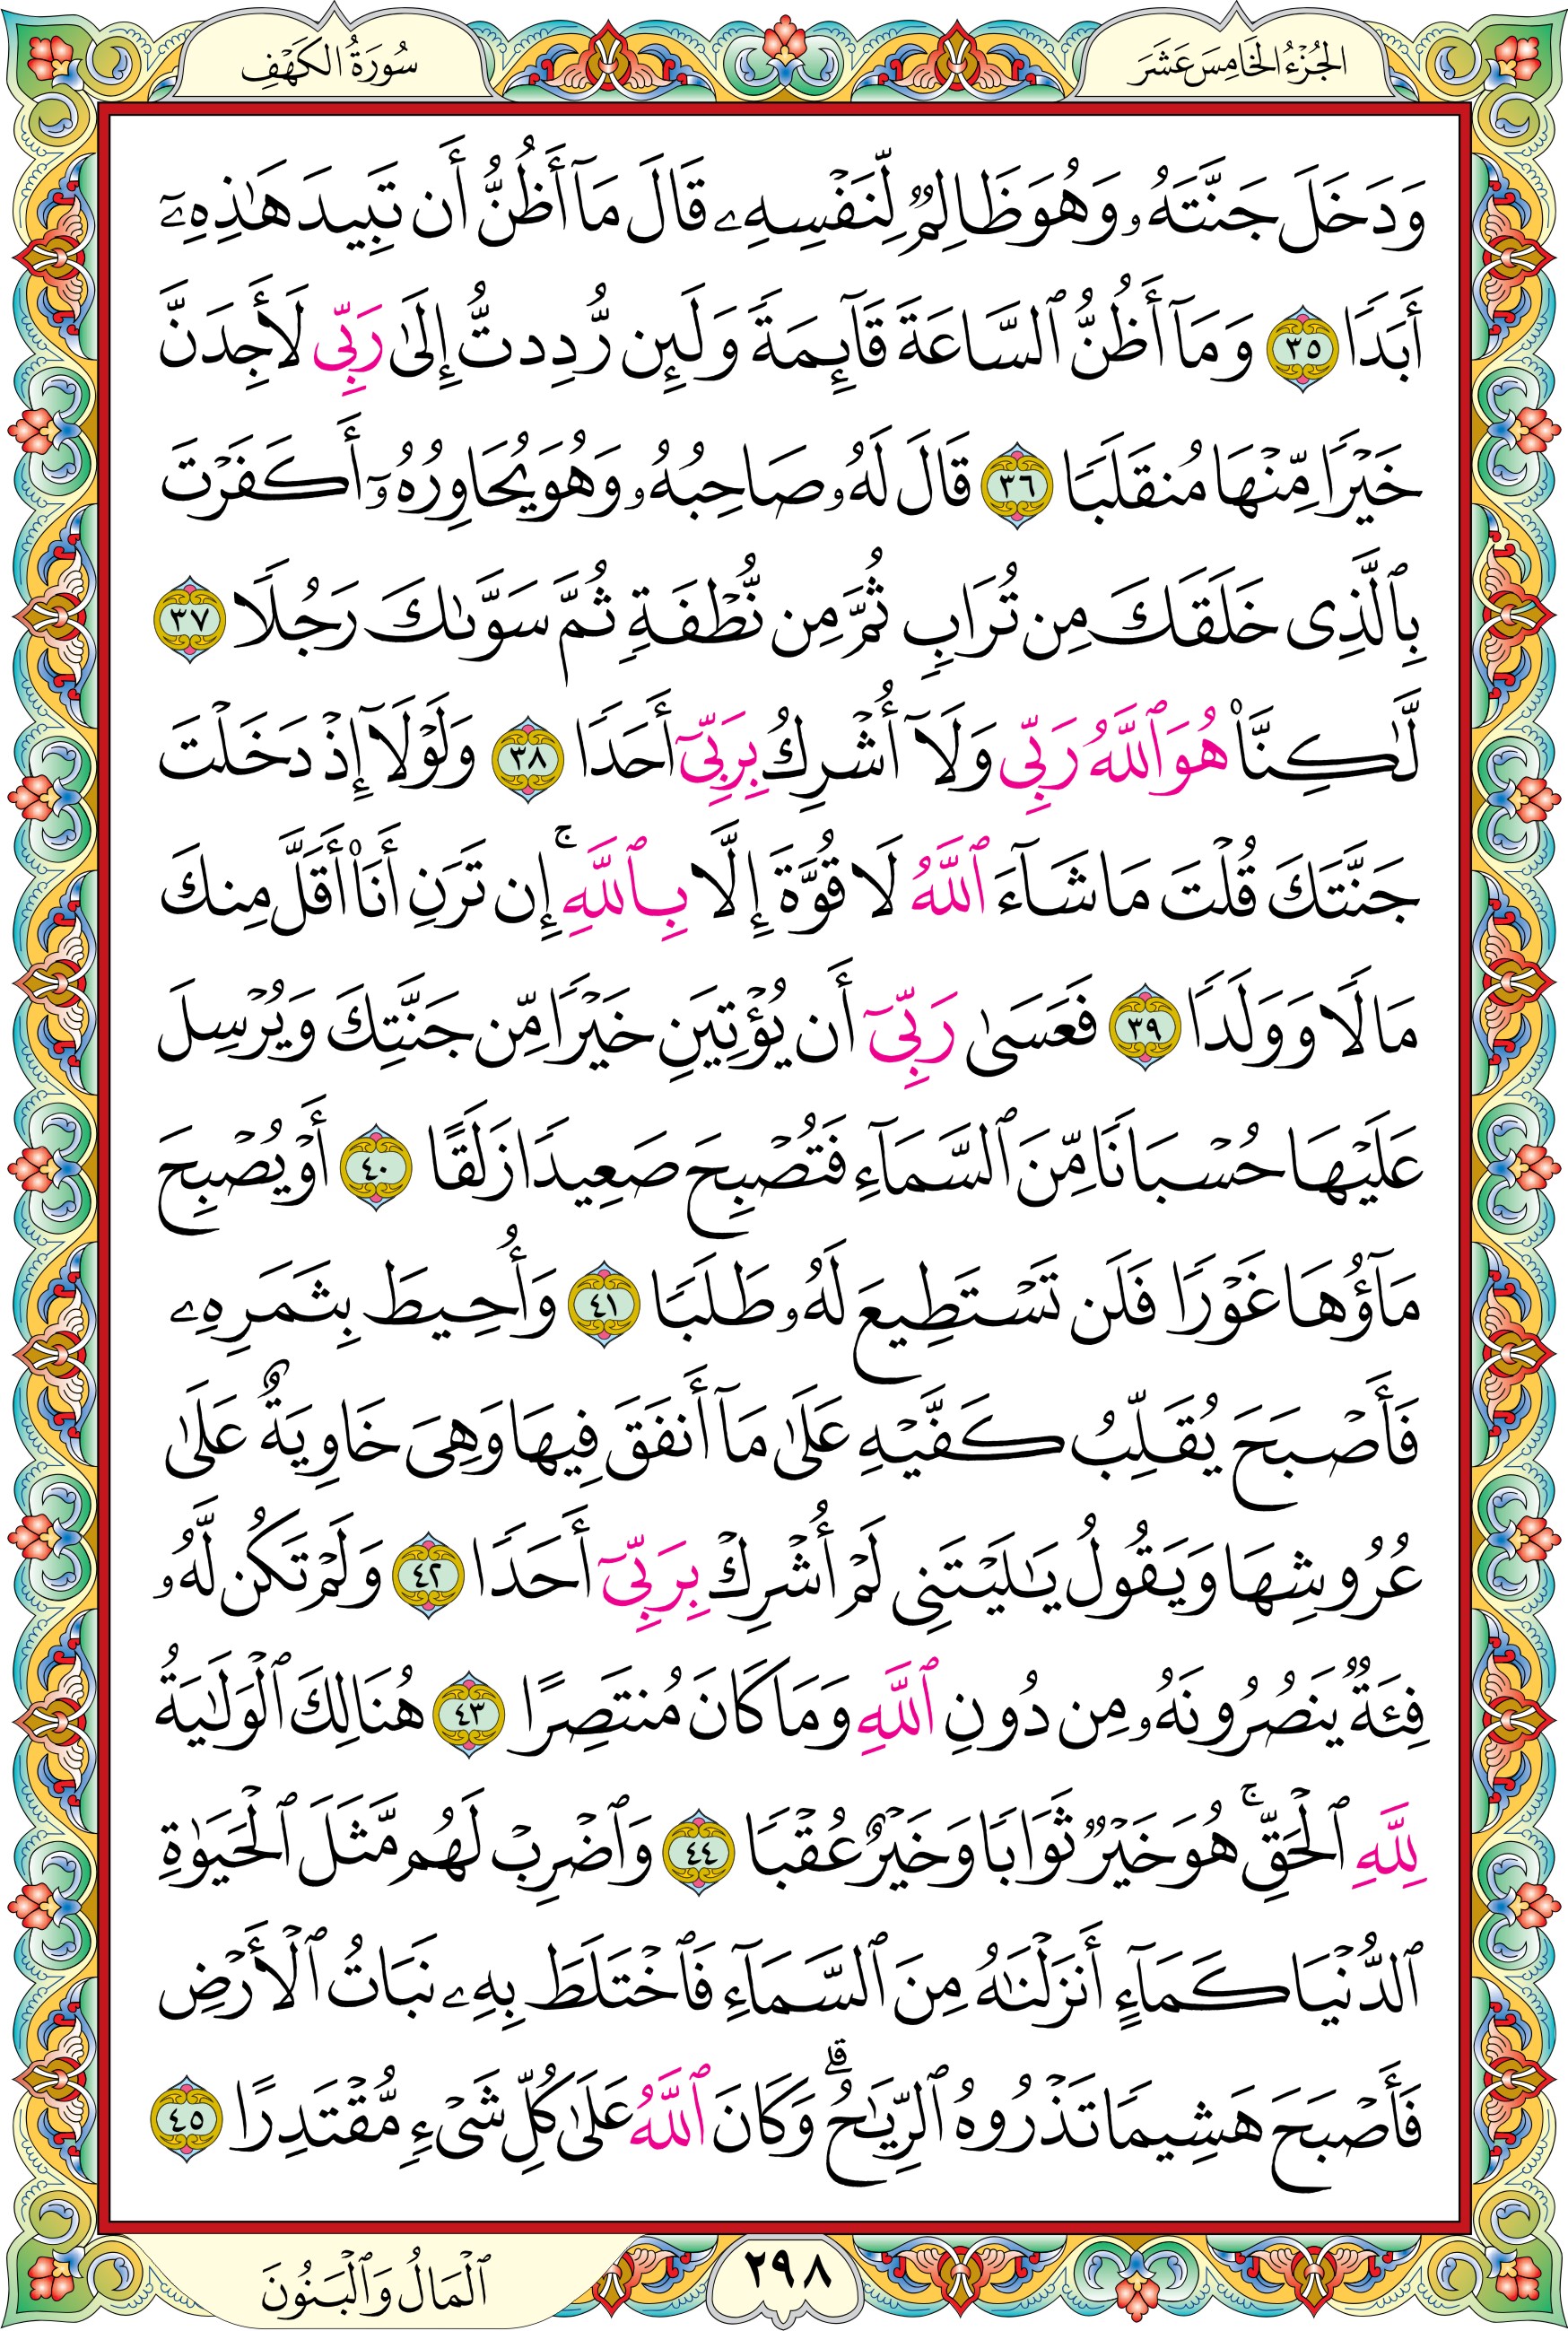 الجُزْءُ الخَامِسَ عَشَرَ
سُورَةُ الكَهْفِ
وَدَخَلَ جَنَّتَهُۥ وَهُوَ ظَالِمٞ لِّنَفۡسِهِۦ قَالَ مَآ أَظُنُّ أَن تَبِيدَ هَٰذِهِۦٓ
أَبَدٗا ٣٥ وَمَآ أَظُنُّ ٱلسَّاعَةَ قَآئِمَةٗ وَلَئِن رُّدِدتُّ إِلَىٰ رَبِّي لَأَجِدَنَّ
خَيۡرٗا مِّنۡهَا مُنقَلَبٗا ٣٦ قَالَ لَهُۥ صَاحِبُهُۥ وَهُوَ يُحَاوِرُهُۥٓ أَكَفَرۡتَ
بِٱلَّذِي خَلَقَكَ مِن تُرَابٖ ثُمَّ مِن نُّطۡفَةٖ ثُمَّ سَوَّىٰكَ رَجُلٗا ٣٧
لَّٰكِنَّا۠ هُوَ ٱللَّهُ رَبِّي وَلَآ أُشۡرِكُ بِرَبِّيٓ أَحَدٗا ٣٨ وَلَوۡلَآ إِذۡ دَخَلۡتَ
جَنَّتَكَ قُلۡتَ مَا شَآءَ ٱللَّهُ لَا قُوَّةَ إِلَّا بِٱللَّهِۚ إِن تَرَنِ أَنَا۠ أَقَلَّ مِنكَ
مَالٗا وَوَلَدٗا ٣٩ فَعَسَىٰ رَبِّيٓ أَن يُؤۡتِيَنِ خَيۡرٗا مِّن جَنَّتِكَ وَيُرۡسِلَ
عَلَيۡهَا حُسۡبَانٗا مِّنَ ٱلسَّمَآءِ فَتُصۡبِحَ صَعِيدٗا زَلَقًا ٤٠ أَوۡ يُصۡبِحَ
مَآؤُهَا غَوۡرٗا فَلَن تَسۡتَطِيعَ لَهُۥ طَلَبٗا ٤١ وَأُحِيطَ بِثَمَرِهِۦ
فَأَصۡبَحَ يُقَلِّبُ كَفَّيۡهِ عَلَىٰ مَآ أَنفَقَ فِيهَا وَهِيَ خَاوِيَةٌ عَلَىٰ
عُرُوشِهَا وَيَقُولُ يَٰلَيۡتَنِي لَمۡ أُشۡرِكۡ بِرَبِّيٓ أَحَدٗا ٤٢ وَلَمۡ تَكُن لَّهُۥ
فِئَةٞ يَنصُرُونَهُۥ مِن دُونِ ٱللَّهِ وَمَا كَانَ مُنتَصِرًا ٤٣ هُنَالِكَ ٱلۡوَلَٰيَةُ
لِلَّهِ ٱلۡحَقِّۚ هُوَ خَيۡرٞ ثَوَابٗا وَخَيۡرٌ عُقۡبٗا ٤٤ وَٱضۡرِبۡ لَهُم مَّثَلَ ٱلۡحَيَوٰةِ
ٱلدُّنۡيَا كَمَآءٍ أَنزَلۡنَٰهُ مِنَ ٱلسَّمَآءِ فَٱخۡتَلَطَ بِهِۦ نَبَاتُ ٱلۡأَرۡضِ
فَأَصۡبَحَ هَشِيمٗا تَذۡرُوهُ ٱلرِّيَٰحُۗ وَكَانَ ٱللَّهُ عَلَىٰ كُلِّ شَيۡءٖ مُّقۡتَدِرًا ٤٥
٢٩٨
ٱلۡمَالُ وَٱلۡبَنُونَ